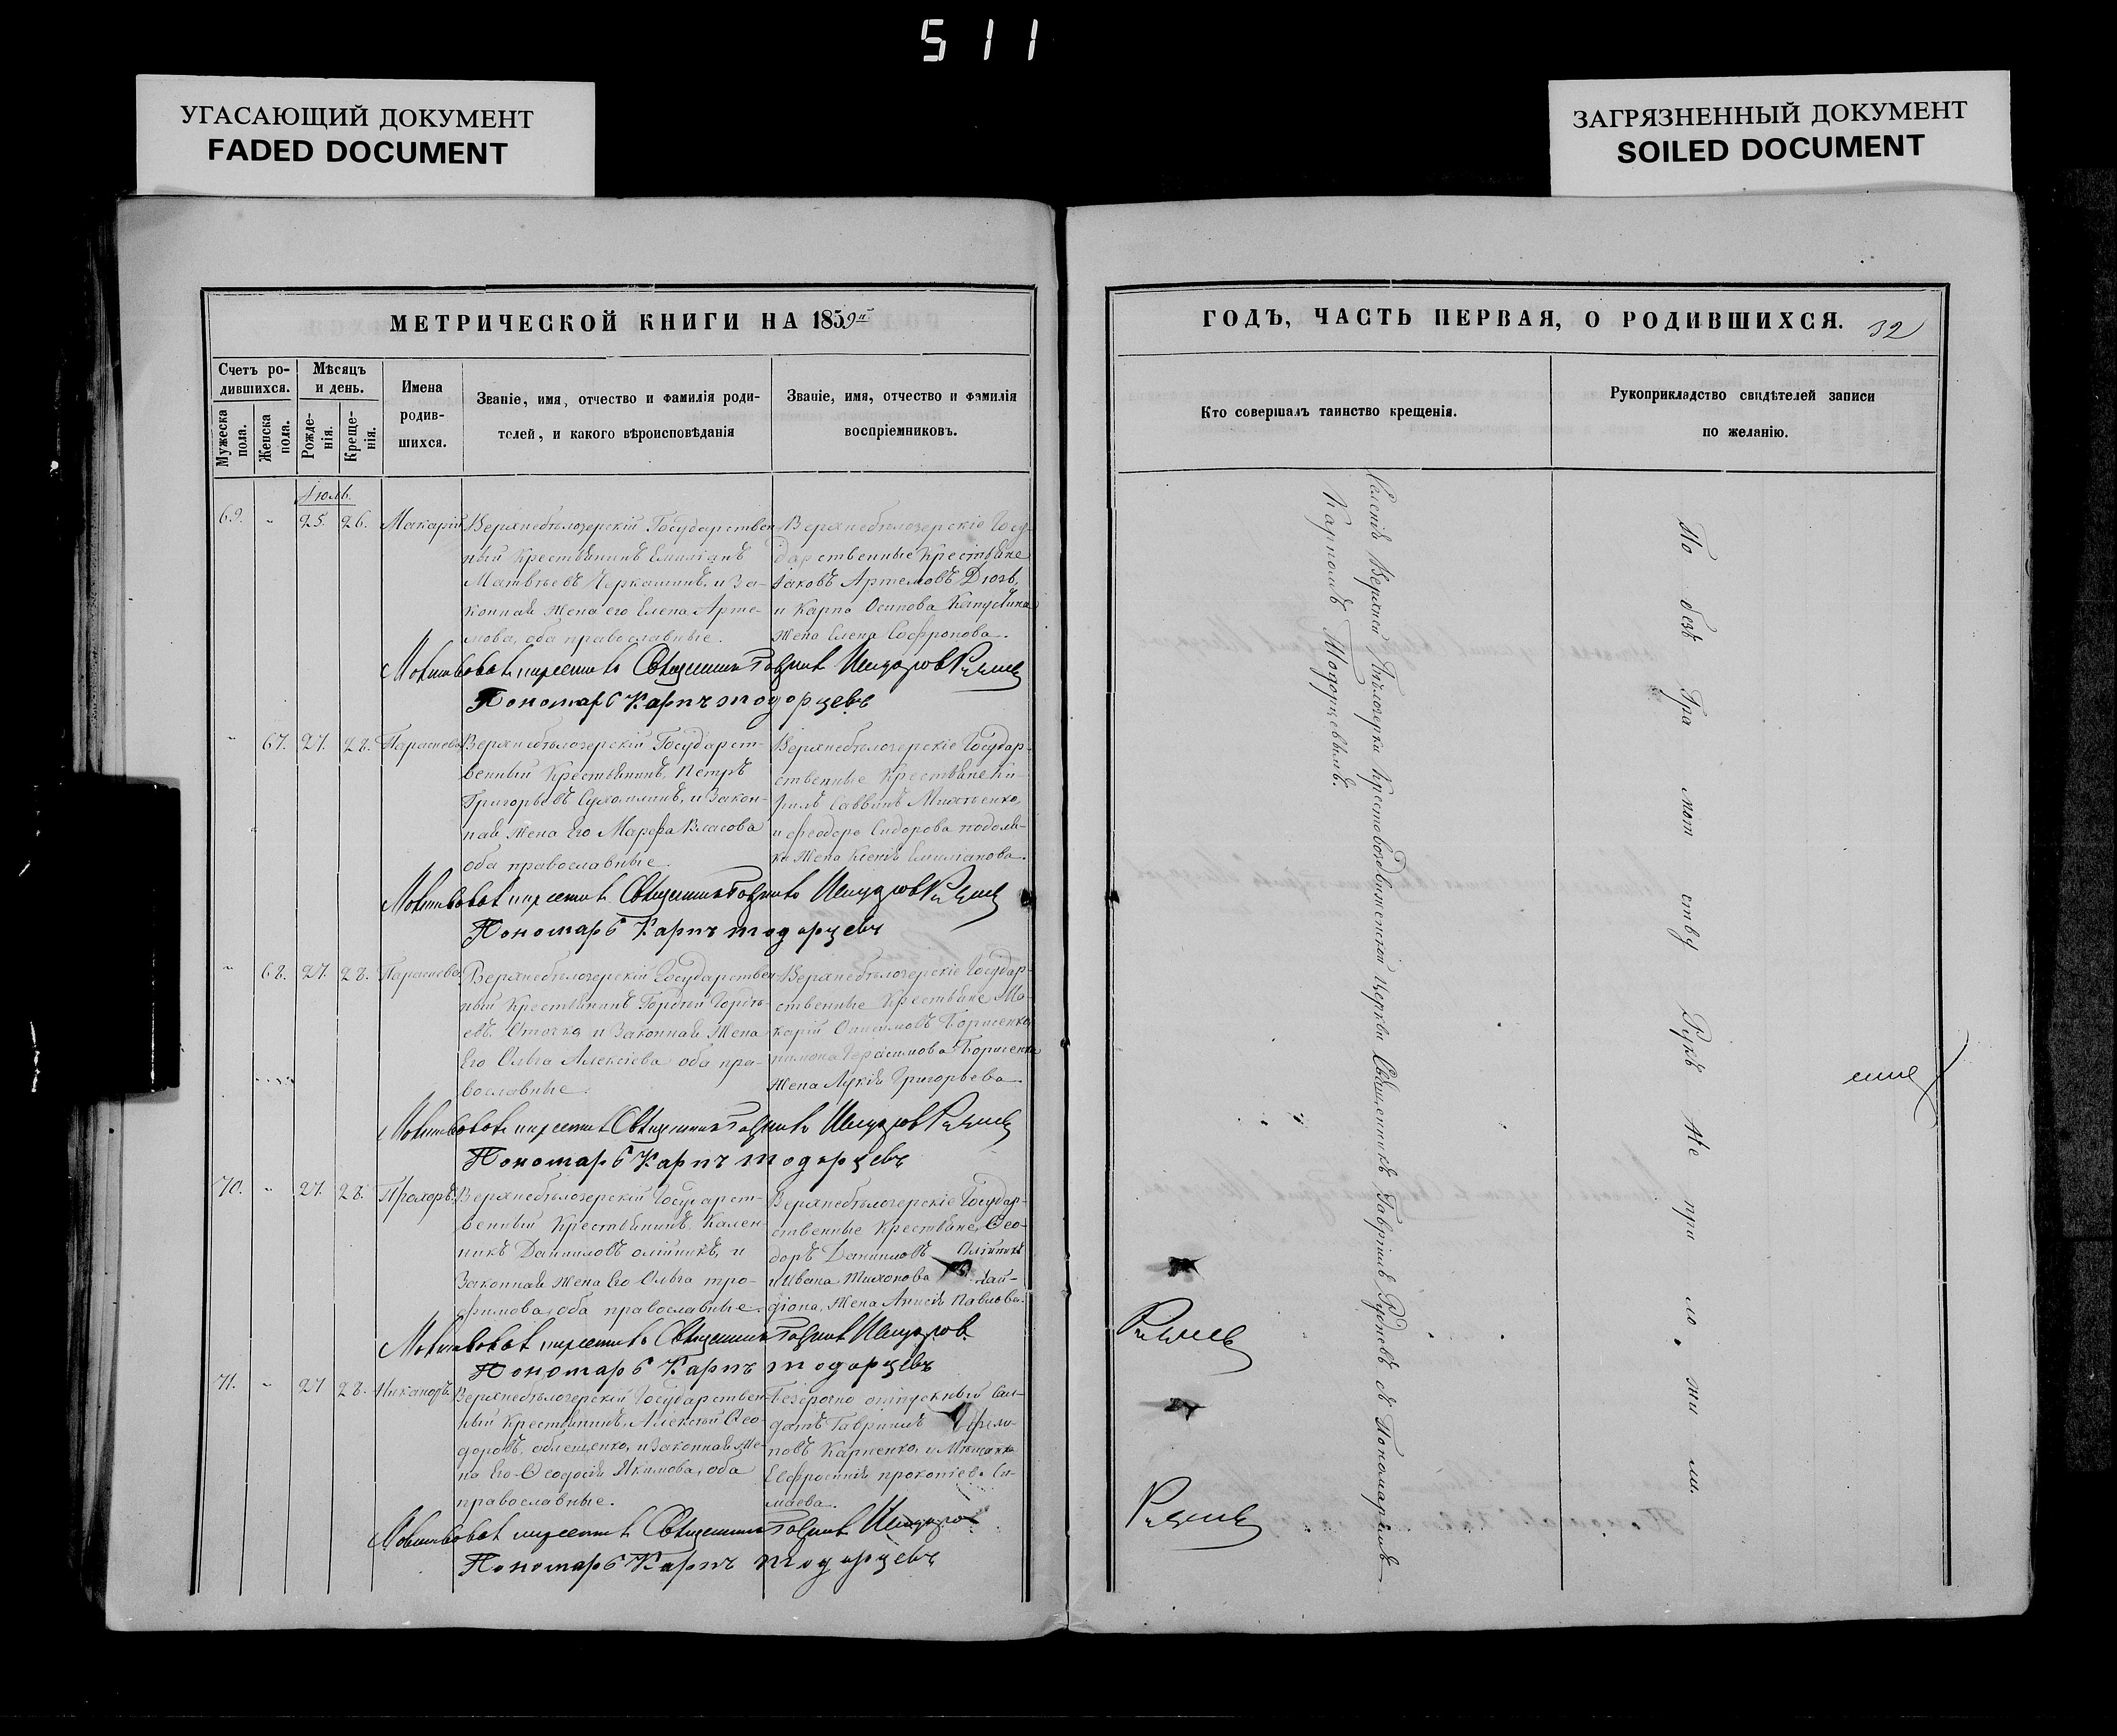 511
УГАСАЮЩИЙ ДОКУМЕНТ
FADED DOCUMENT
ЗАГРЯЗНЕННЫЙ ДОКУМЕНТ
SOILED DOCUMENT
МЕТРИЧЕСКОЙ КНИГИ НА 1859й
Счетъ ро-
дившихся.
Мужеска
пола.
Женска
пола.
Мѣсяцъ
и день.
Рожде-
нія.
Креще-
нія.
Имена
родив-
шихся.
Званіе, имя, отчество и фамилія роди-
телей, и какого вѣроисповѣданія
Званіе, имя, отчество и фамилія
воспріемниковъ.
Іюль.
69. " 25. 26. Макарій
Верхнебѣлозерскій Государствен-
ный Крестьянинъ Емиліанъ
Матвѣевъ Черкашинъ, и За-
конная жена его Елена Арте-
мова, оба православные.
Верхнебѣлозерскіе Госу-
дарственные Крестьяне
Іаковъ Артемовъ Дюгъ,
и Карпа Осипова Капустина
жена Елена Софронова.
Священникъ Гавріилъ
Пономарь Карпъ Тодорцевъ
" 67. 27. 28. Параскева
Верхнебѣлозерскій Государст-
венный Крестьянинъ, Петръ
Григорьевъ Сухомлинъ, и Закон-
ная жена Его Марфа Власова
оба православные.
Верхнебѣлозерскіе Государ-
ственные Крестьяне Ки-
рилъ Саввинъ
и Феодора Сидорова подоля-
ка жена Ксенія Емилианова.
Священникъ Гавріилъ
Пономарь Карпъ Тодорцевъ
" 68. 27. 28. Параскева
Верхнебѣлозерскій Государствен-
ный Крестьянинъ Гордѣй Гордѣ-
евъ и Законная Жена
Его Ольга Алексіева оба пра-
вославные.
Верхнебѣлозерскіе Государ-
ственные Крестьяне Ма-
карій Онисимовъ Борисенко,
Герасимова Борисенка
жена Лукія Григорьева.
Священникъ Гавріилъ
Пономарь Карпъ Тодорцевъ
70. " 27. 28. Прохоръ.
Верхнебѣлозерскій Государст-
венный Крестьянинъ, Кален-
никъ Даниловъ олійникъ, и
Законная жена Его Ольга тро-
фимова, оба православные.
Верхнебѣлозерскіе Государ-
ственные Крестьяне, Ѳео-
доръ Даниловъ Олійникъ
и Ивана Тихонова
жена Анисія Павлова.
Священникъ Гавріилъ
Пономарь Карпъ Тодорцевъ
71. " 27 28. Никаноръ.
Верхнебѣлозерскій Государствен-
ный Крестьянинъ, Алексѣй Ѳео-
доровъ, облещенко, и Законная же-
на Его Ѳеодосія Якимова, оба
православные.
Безсрочно отпускный Сол-
датъ Гавриилъ
Карпенко, и Мѣщанка
Евфросинія прокопіева Си-
маева.
Священникъ Гавріилъ
Пономарь Карпъ Тодорцевъ
ГОДЪ, ЧАСТЬ ПЕРВАЯ, О РОДИВШИХСЯ.
32
Кто совершалъ таинство крещенія.
Рукоприкладство свидѣтелей записи
по желанію.
Верхней Бѣлозерки Крестовоздвиженской Церкви Священникъ Гавріилъ Рудневъ съ Пономаремъ
Карпомъ Тодорцевымъ.
По безъ Гра мот ству Рукъ Не при ло жи ли.